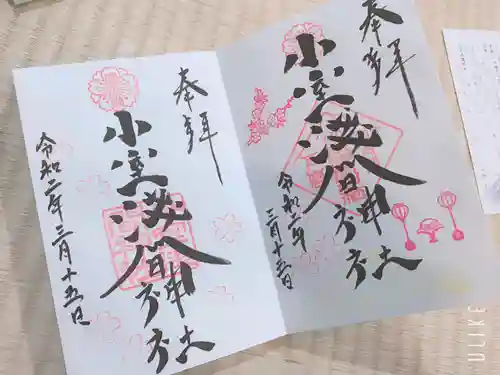 奉拝
小室浅間神社
令和二年
三月十五日
奉拝
小室浅間神社
令和二年三月十五日
ULIKE